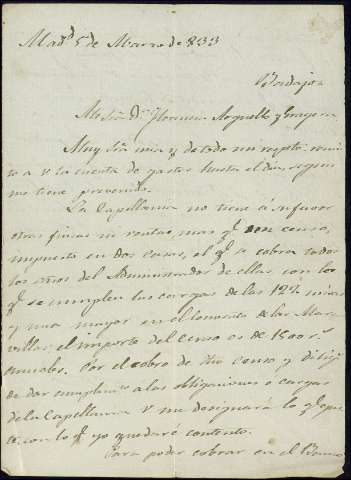 Mad.d 5 de Marzo de 833
Badajoz
Muy Sra mia y de todo mi respto: remi
to a V la cuenta de gastos hasta el dia, segun
me tiene prevenido.
La Capellania no tiene á su favor
otras fincas ni rentas, mas q.e un censo,
impuesto en dos casas, el q.e se cobra todos
los años del Administrador de ellas, con los
q.e se cumplen las cargas de las 122 misas
y una mayor en el Convento de las Mara
villas: el importe del censo es de 1500 r.s
anuales. Por el cobro de dho censo y
de dar cumplim.to a las obligaciones o cargas
de la Capellania V me designará lo q.e gus
te, con lo q.e yo quedaré contento.
Para poder cobrar en el Banco